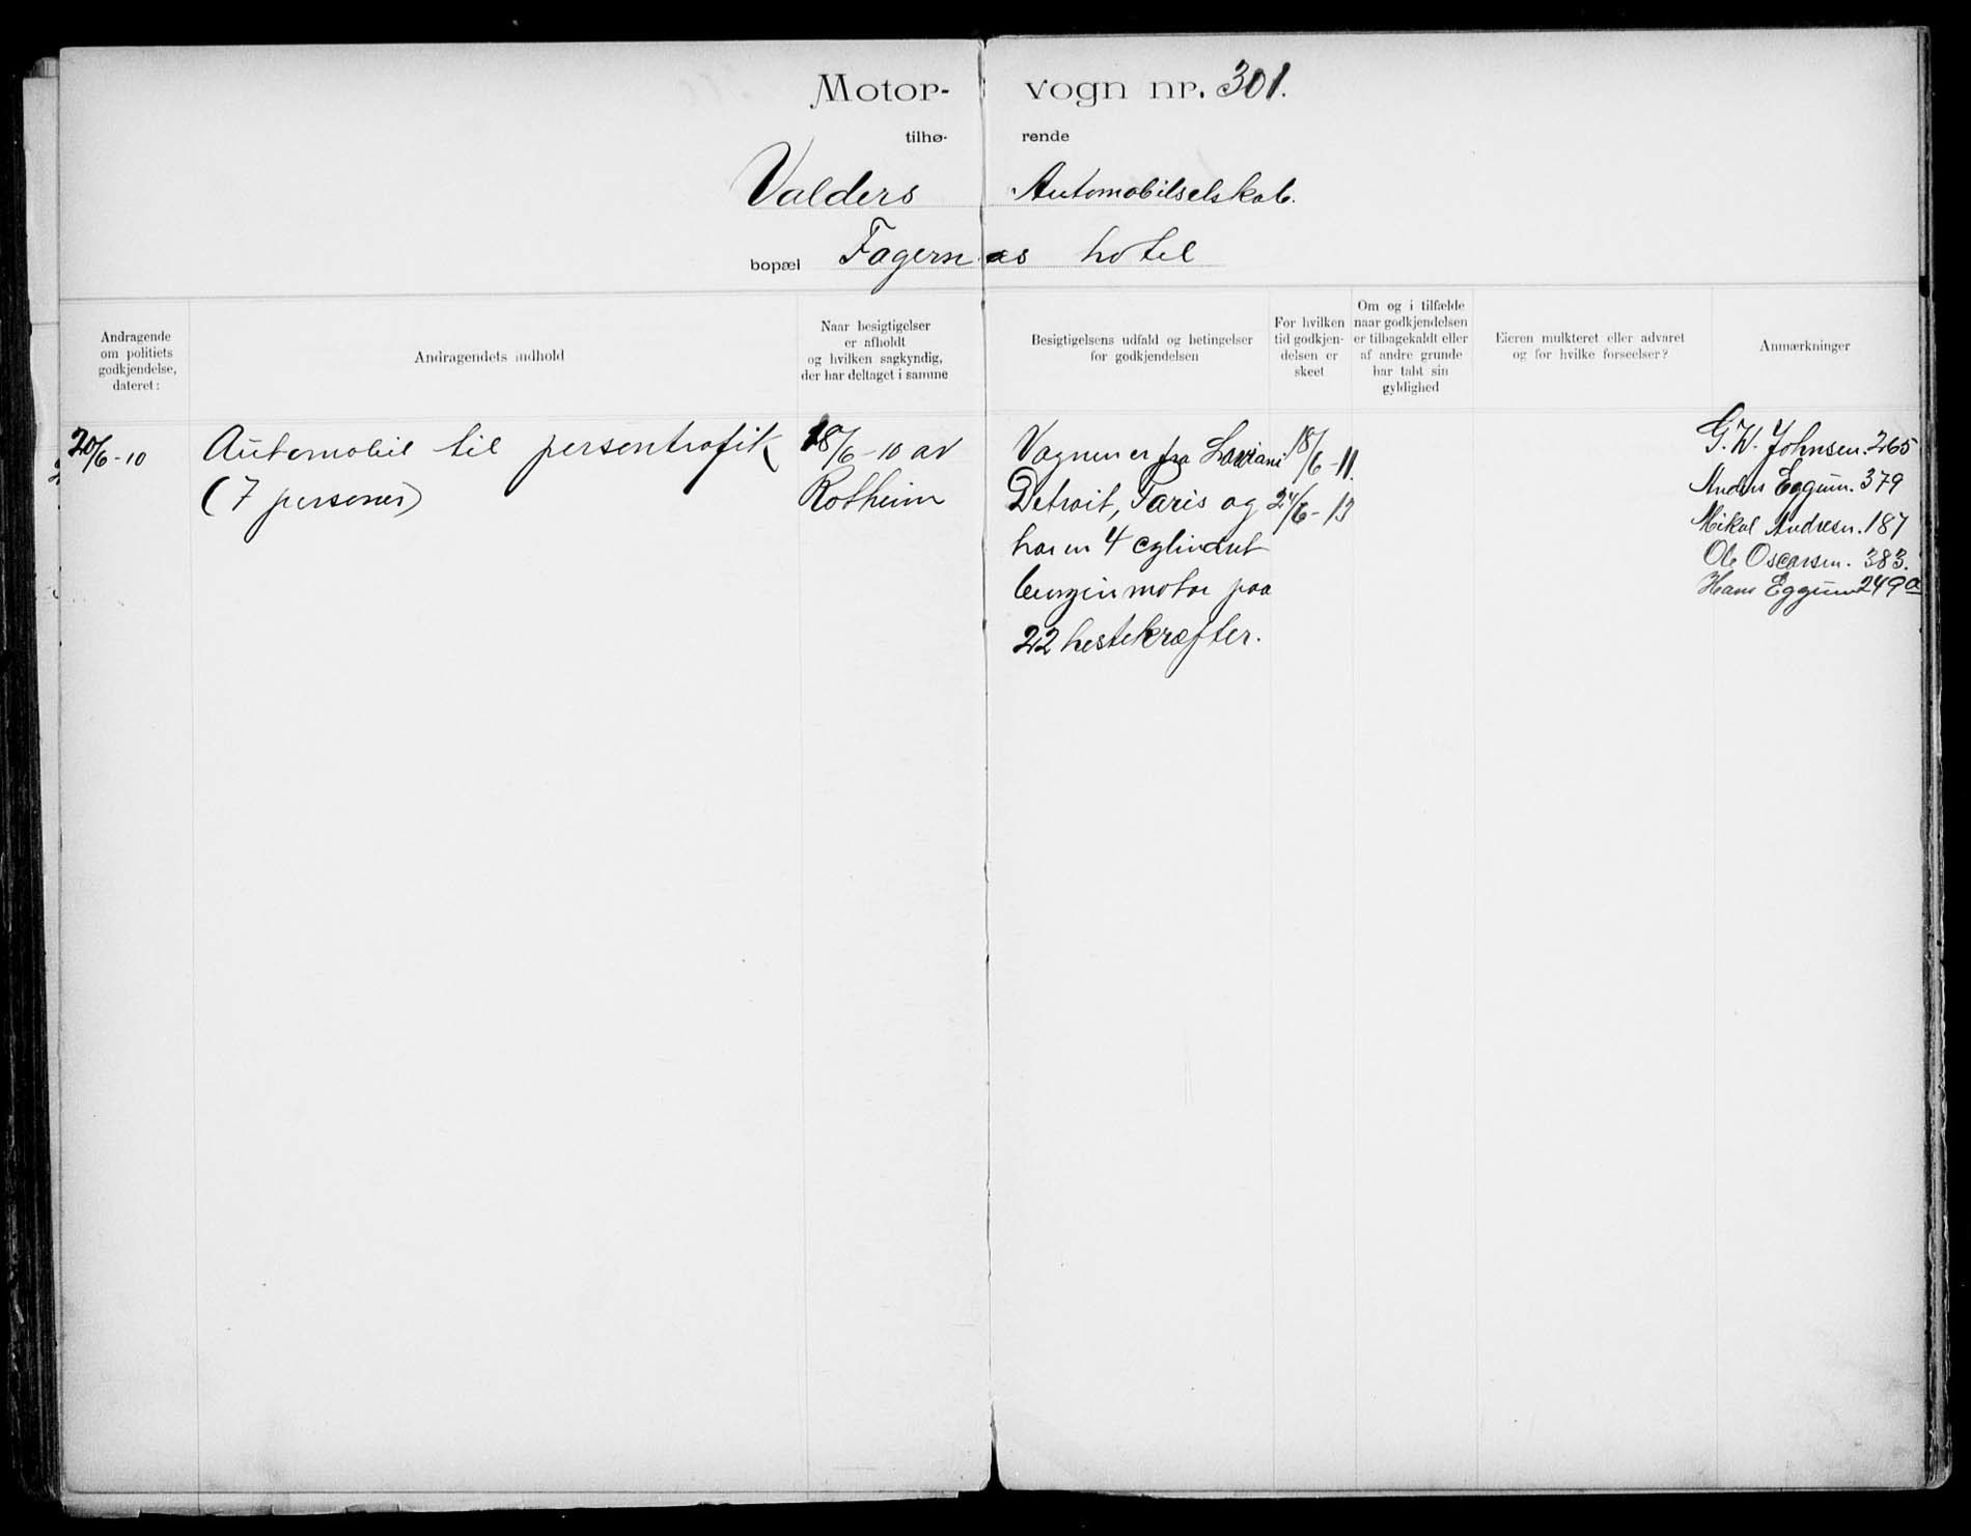 Motor- vogn nr. 301.
tilhø- rende
Valders Automobilselskab.
bopæl Fagernæs hotel
Andragende
om politiets
godkjendelse,
dateret:
Andragendets indhold
Naar besigtigelser
er afholdt
og hvilken sagkyndig,
der har deltaget i samme
Besigtigelsens udfald og betingelser
for godkjendelsen
For hvilken
tid godkjen-
delsen er
skeet
Om og i tilfælde
naar godkjendelsen
er tilbagekaldt eller
af andre grunde
har tabt sin
gyldighed
Eieren mulkteret eller advaret
og for hvilke forseelser?
Anmærkninger
20/6-10
Automobil til persontrafik
(7 personer)
18/6-10 av
Rotheim
Vognen er fra
Detroit, Paris og
har en 4 cylindret
benzin motor paa
22 hestekræfter.
18/6-11.
24/6-13
G. W. Johnsen. 265
Anders Eggum. 379
Mikal Andresen. 187
Ole Oscarsen. 383.
Hans Eggum 249a